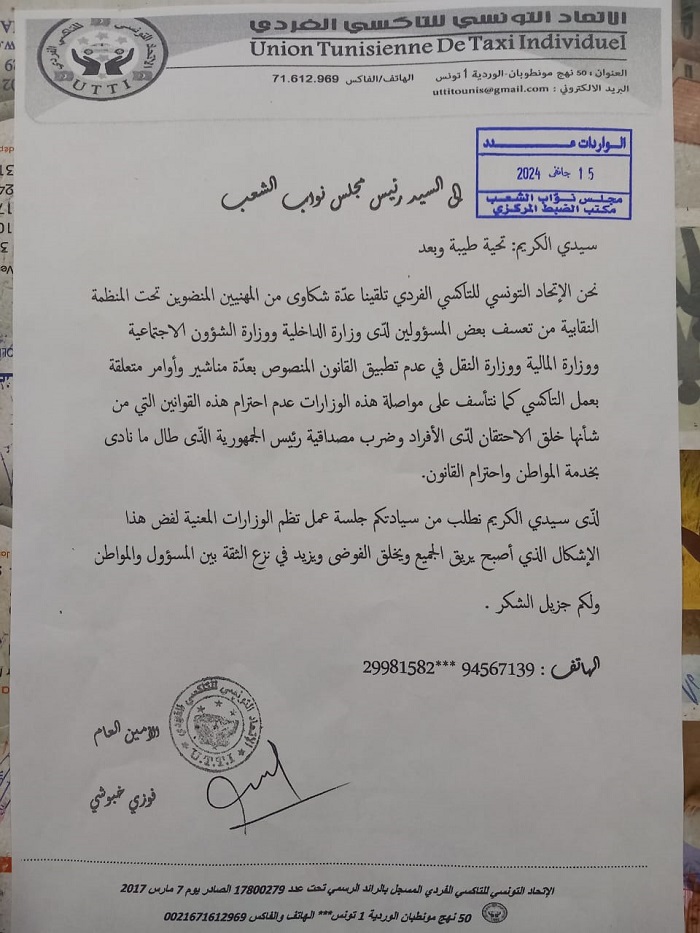 الإتحاد التونسي للتاكسي الفردي
Union Tunisienne De Taxi Individuel
العنوان : 50 نهج مونطوبان-الوردية 1 تونس الهاتف/الفاكس 71.612.969
البريد الالكتروني : uttitounis@gmail.com
UTTI
الـواردات عــدد
15 جانفي 2024
مجلس نـواب الشعب
مكتب الضبط المركزي
الى السيد رئيس مجلس نواب الشعب
سيدي الكريم: تحية طيبة وبعد
نحن الإتحاد التونسي للتاكسي الفردي تلقينا عدّة شكاوى من المهنيين المنضوين تحت المنظمة
النقابية من تعسف بعض المسؤولين لدّى وزارة الداخلية ووزارة الشؤون الاجتماعية
ووزارة المالية ووزارة النقل في عدم تطبيق القانون المنصوص بعدّة مناشير وأوامر متعلقة
بعمل التاكسي كما نتأسف على مواصلة هذه الوزارات عدم احترام هذه القوانين التي من
شأنها خلق الاحتقان لدّى الأفراد وضرب مصداقية رئيس الجمهورية الذّى طال ما نادى
بخدمة المواطن واحترام القانون.
لذّى سيدي الكريم نطلب من سيادتكم جلسة عمل تظم الوزارات المعنية لفض هذا
الإشكال الذي أصبح يريق الجميع ويخلق الفوضى ويزيد في نزع الثقة بين المسؤول والمواطن
ولكم جزيل الشكر .
الهاتف : 94567139 *** 29981582
الأمين العام
الإتحاد التونسي للتاكسي الفردي
U.T.T.I
فوزي خبوشي
الإتحاد التونسي للتاكسي الفردي المسجل بالرائد الرسمي تحت عدد 17800279 الصادر يوم 7 مارس 2017
50 نهج مونطبان الوردية 1 تونس*** الهاتف والفاكس 0021671612969